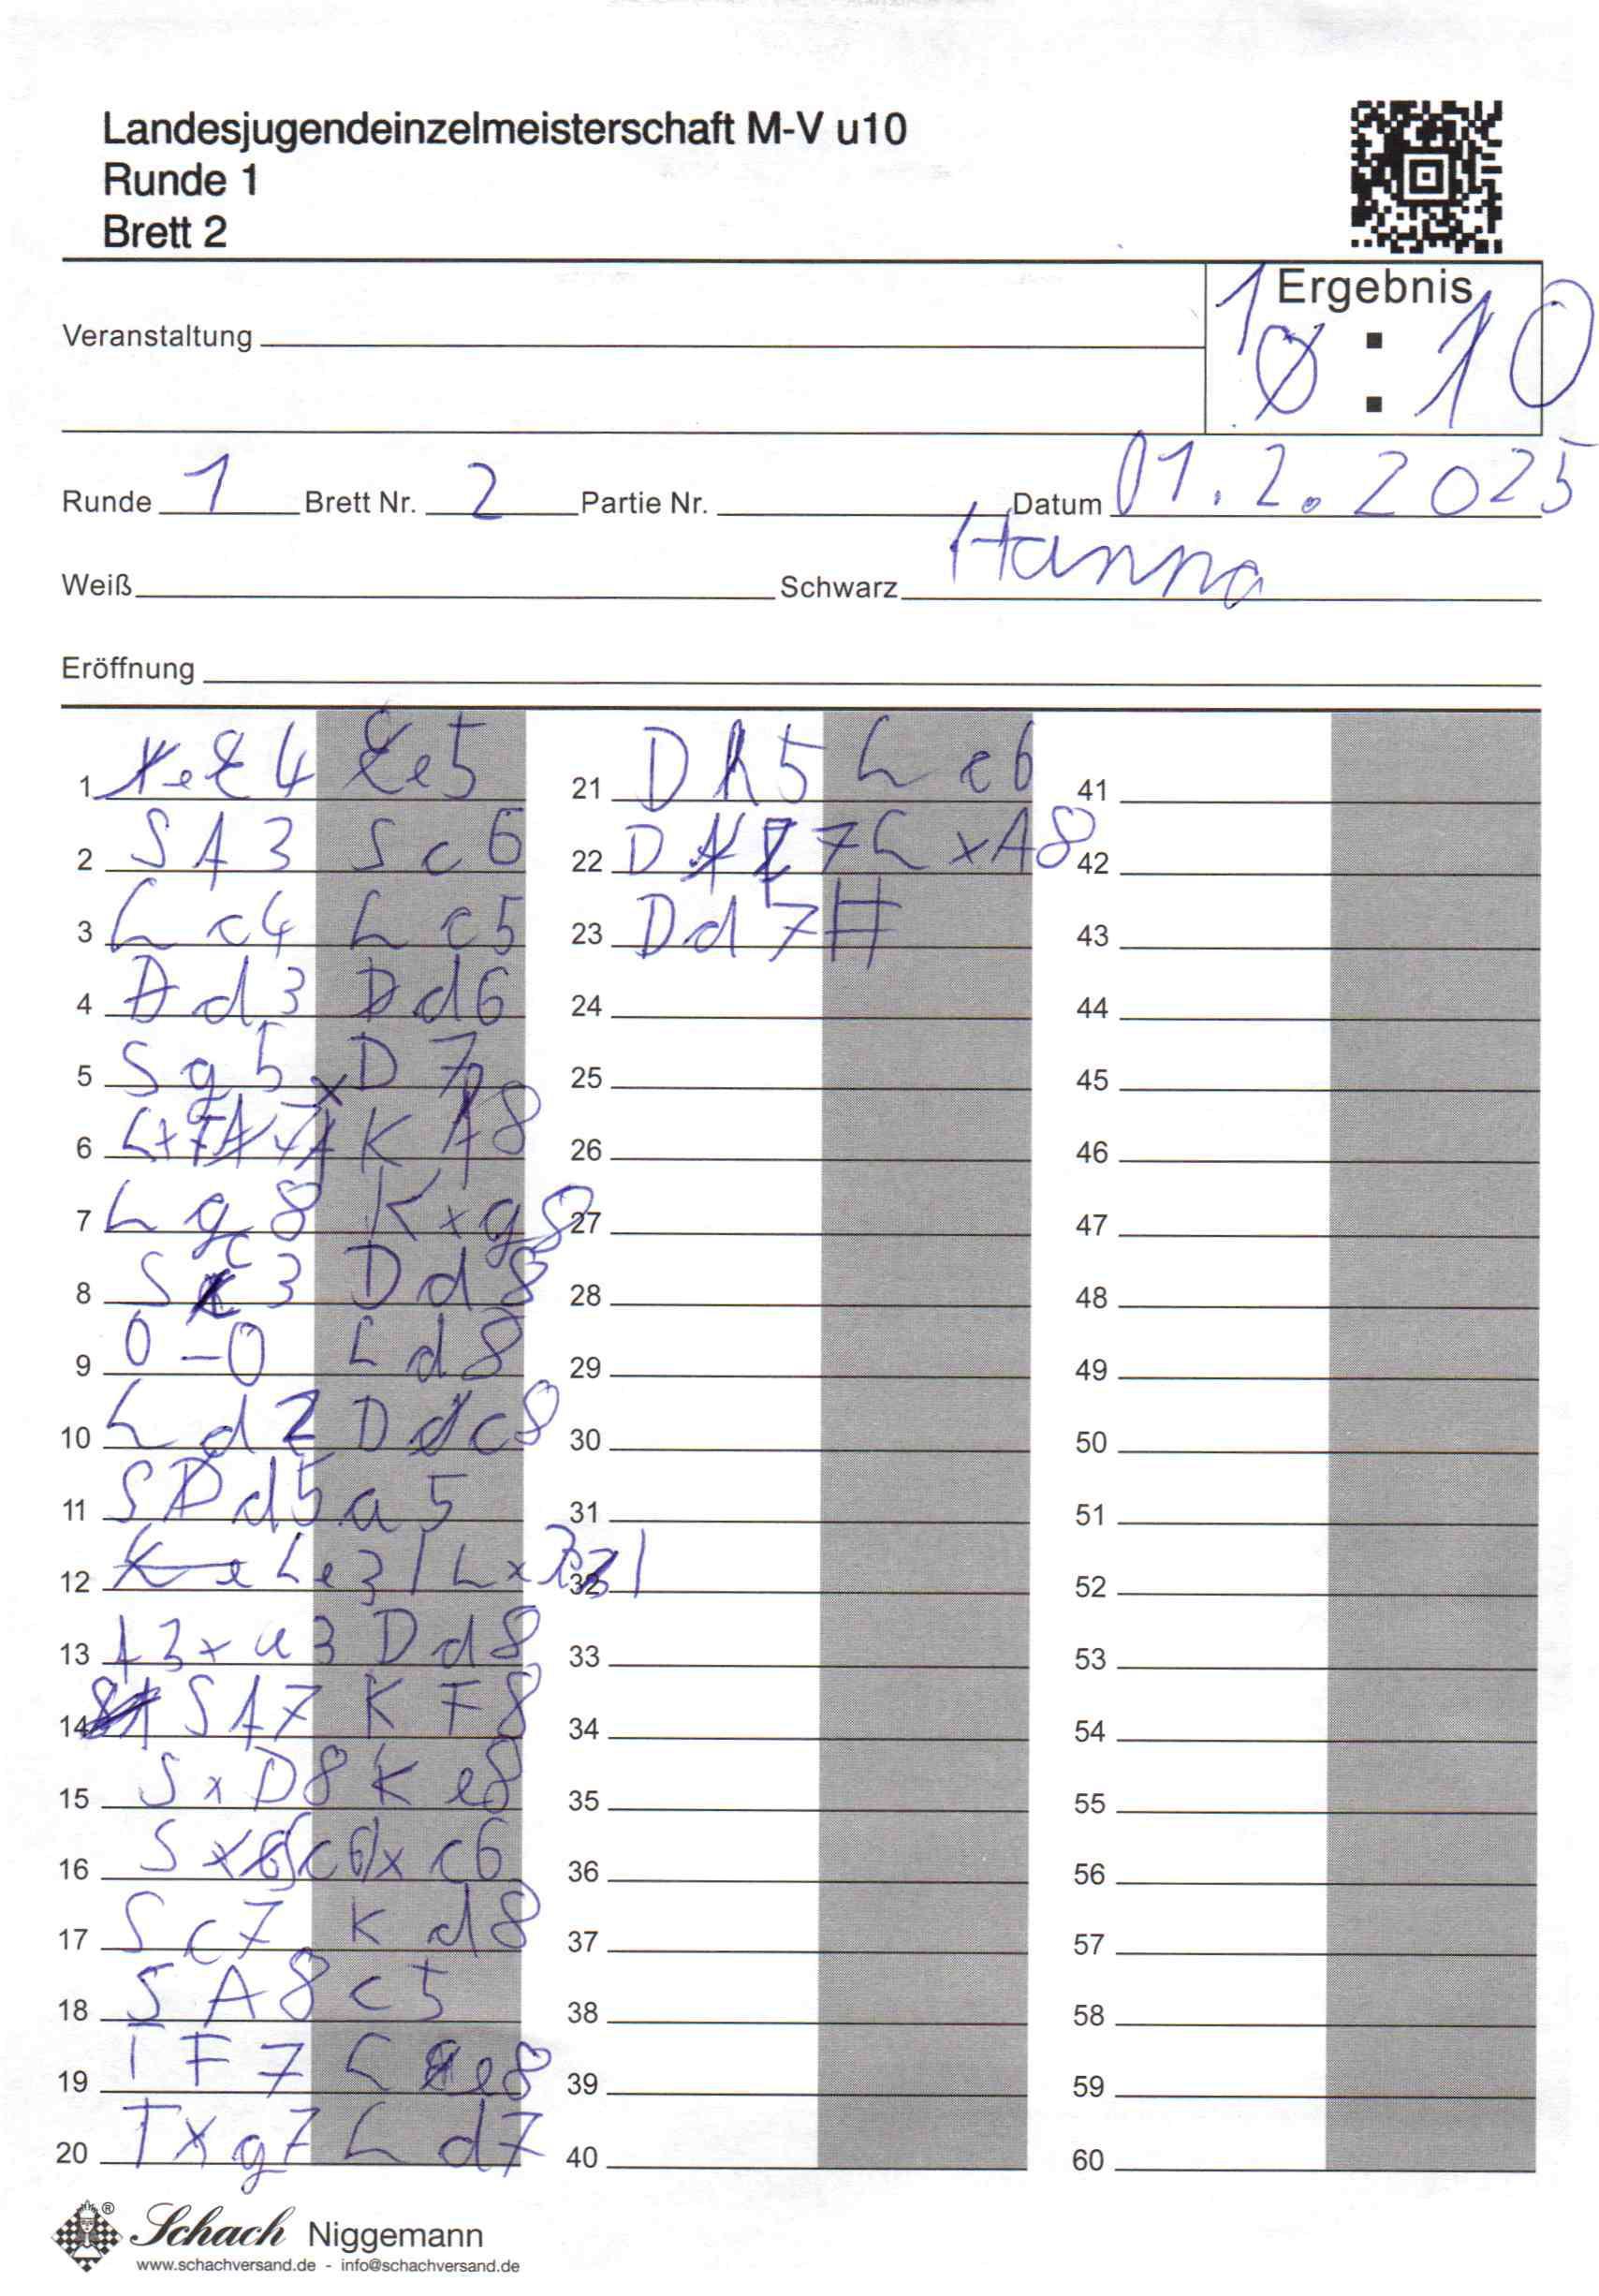 Landesjugendeinzelmeisterschaft M-V u10
Runde 1
Brett 2
Ergebnis
1 : 0
Veranstaltung
Runde 1 Brett Nr. 2 Partie Nr. Datum 01.2.2025
Weiß Schwarz Hanna
Eröffnung
1 e4 e5
2 Sf3 Sc6
3 Lc4 Lc5
4 d3 d6
5 Sg5 D7
6 Lxf7 Kf8
7 Lg8 Kxg8
8 Sc3 Dd8
9 0-0 Ld8
10 Ld2 Dc8
11 Sd5 a5
12 Le3 Lx
13 f3xe3 Dd8
14 Sf7 KF8
15 SxD8 Ke8
16 Sxc6 xc6
17 Sc7 Kd8
18 SA8 c5
19 TF7 Le8
20 Txg7 Ld7
21 Dh5 Le6
22 D 7 LxA8
23 Dd7#
24
25
26
27
28
29
30
31
32
33
34
35
36
37
38
39
40
41
42
43
44
45
46
47
48
49
50
51
52
53
54
55
56
57
58
59
60
Schach Niggemann
www.schachversand.de - info@schachversand.de